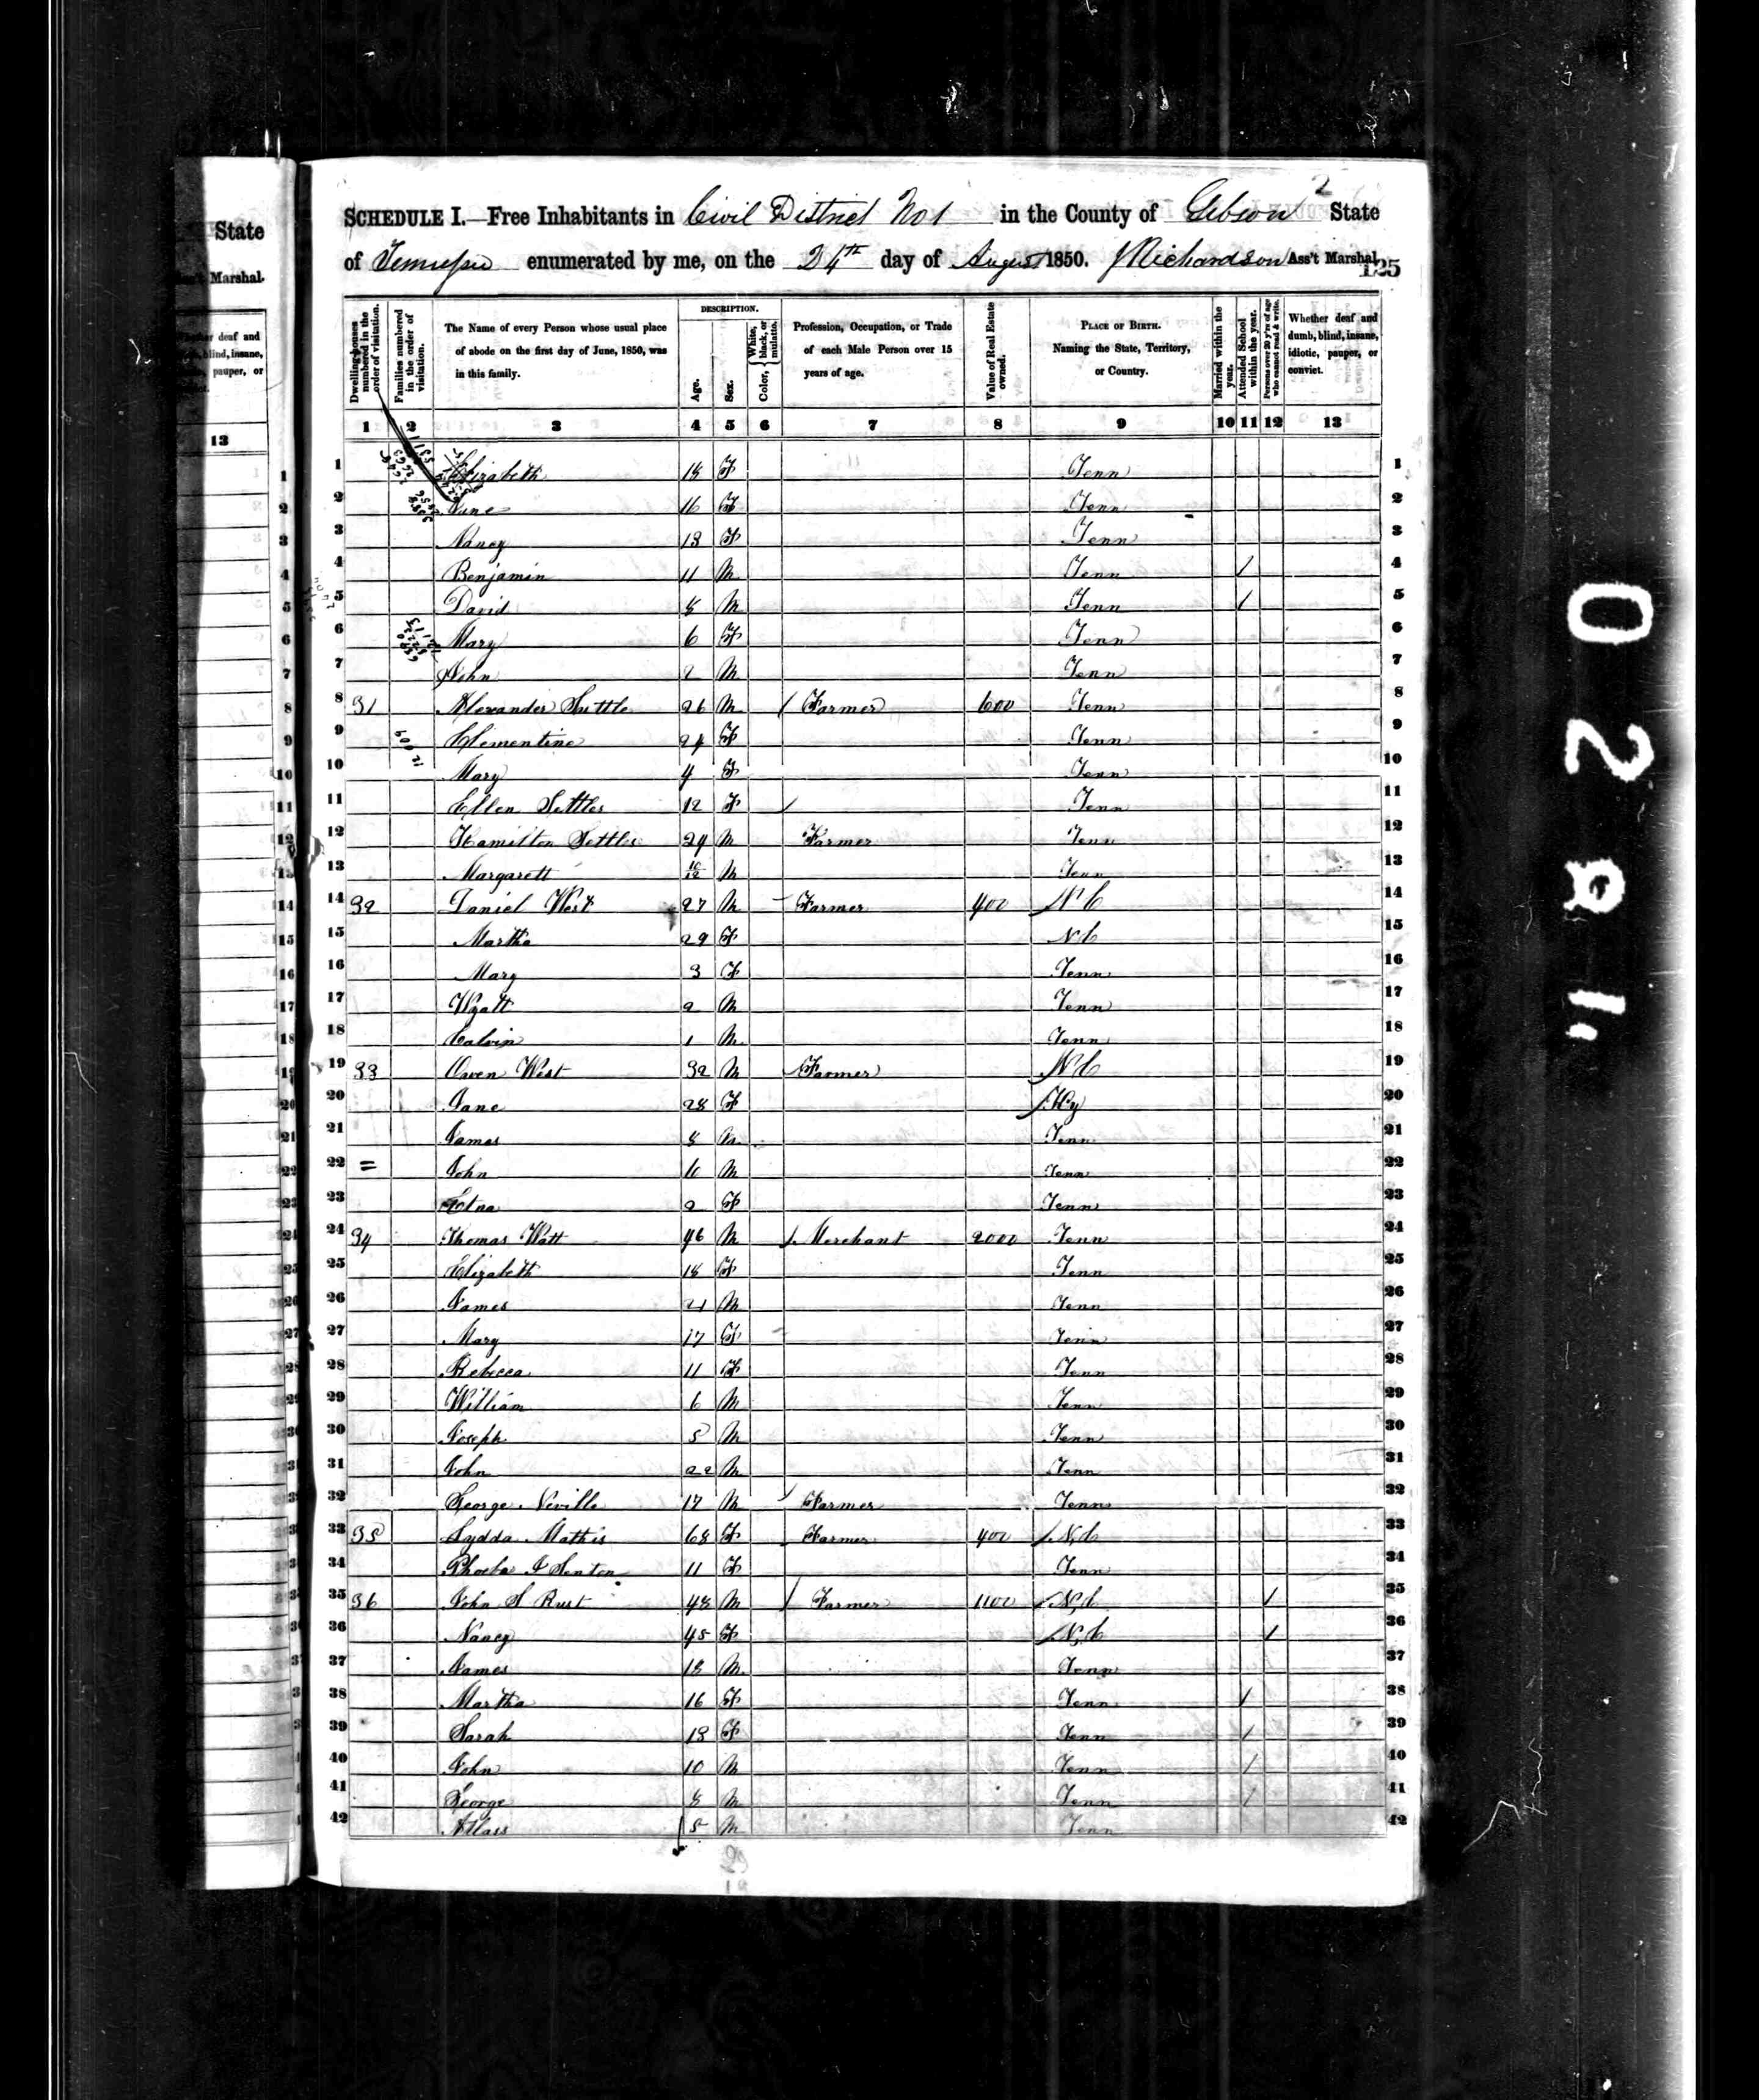 2
SCHEDULE I.—Free Inhabitants in Civil District No 1 in the County of Gibson State
of Tennessee enumerated by me, on the 24th day of August 1850. J Richardson Ass't Marshal.
State
Marshal.
deaf and
blind, insane,
pauper, or
13
Dwelling-houses numbered in the order of visitation.
Families numbered in the order of visitation.
The Name of every Person whose usual place of abode on the first day of June, 1850, was in this family.
DESCRIPTION.
Age.
Sex.
Color, { White, black, or mulatto.
Profession, Occupation, or Trade of each Male Person over 15 years of age.
Value of Real Estate owned.
PLACE OF BIRTH. Naming the State, Territory, or Country.
Married within the year.
Attended School within the year.
Persons over 20 y'rs of age who cannot read & write.
Whether deaf and dumb, blind, insane, idiotic, pauper, or convict.
1 2 3 4 5 6 7 8 9 10 11 12 13
1 Elizabeth 18 F Tenn 1
2 Jane 16 F Tenn 2
3 Nancy 13 F Tenn 3
4 Benjamin 11 M Tenn / 4
5 David 8 M Tenn / 5
6 Mary 6 F Tenn 6
7 John 2 M Tenn 7
8 31 Alexander Suttle 26 M / Farmer 600 Tenn 8
9 Clementine 24 F Tenn 9
10 Mary 4 F Tenn 10
11 Ellen Settles 12 F / Tenn 11
12 Hamilton Settles 24 M Farmer Tenn 12
13 Margarett 10/12 M Tenn 13
14 32 Daniel West 27 M Farmer 400 N C 14
15 Martha 29 F N C 15
16 Mary 3 F Tenn 16
17 Wyatt 2 M Tenn 17
18 Calvin 1 M Tenn 18
19 33 Owen West 32 M Farmer N C 19
20 Jane 28 F Ky 20
21 James 8 M Tenn 21
22 = John 10 M Tenn 22
23 2 F Tenn 23
24 34 Thomas Watt 46 M / Merchant 2000 Tenn 24
25 Elizabeth 18 F Tenn 25
26 James 21 M Tenn 26
27 Mary 17 F Tenn 27
28 Rebecca 11 F Tenn 28
29 William 6 M Tenn 29
30 Joseph 5 M Tenn 30
31 John 22 M Tenn 31
32 George Neville 17 M / Farmer Tenn 32
33 35 Lydda Mathis 68 F Farmer 400 N C 33
34 Phoeba J Senton 11 F Tenn 34
35 36 John S Rust 48 M / Farmer 1100 N C / 35
36 Nancy 45 F N C / 36
37 James 18 M Tenn 37
38 Martha 16 F Tenn / 38
39 Sarah 13 F Tenn / 39
40 John 10 M Tenn / 40
41 George 8 M Tenn / 41
42 Atlass 5 M Tenn 42